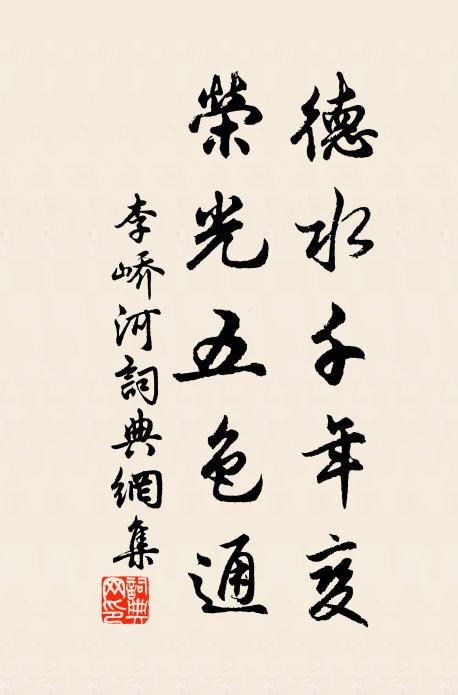 德水千年變
榮光五色通
李嶠河詞典網集
詞典网印